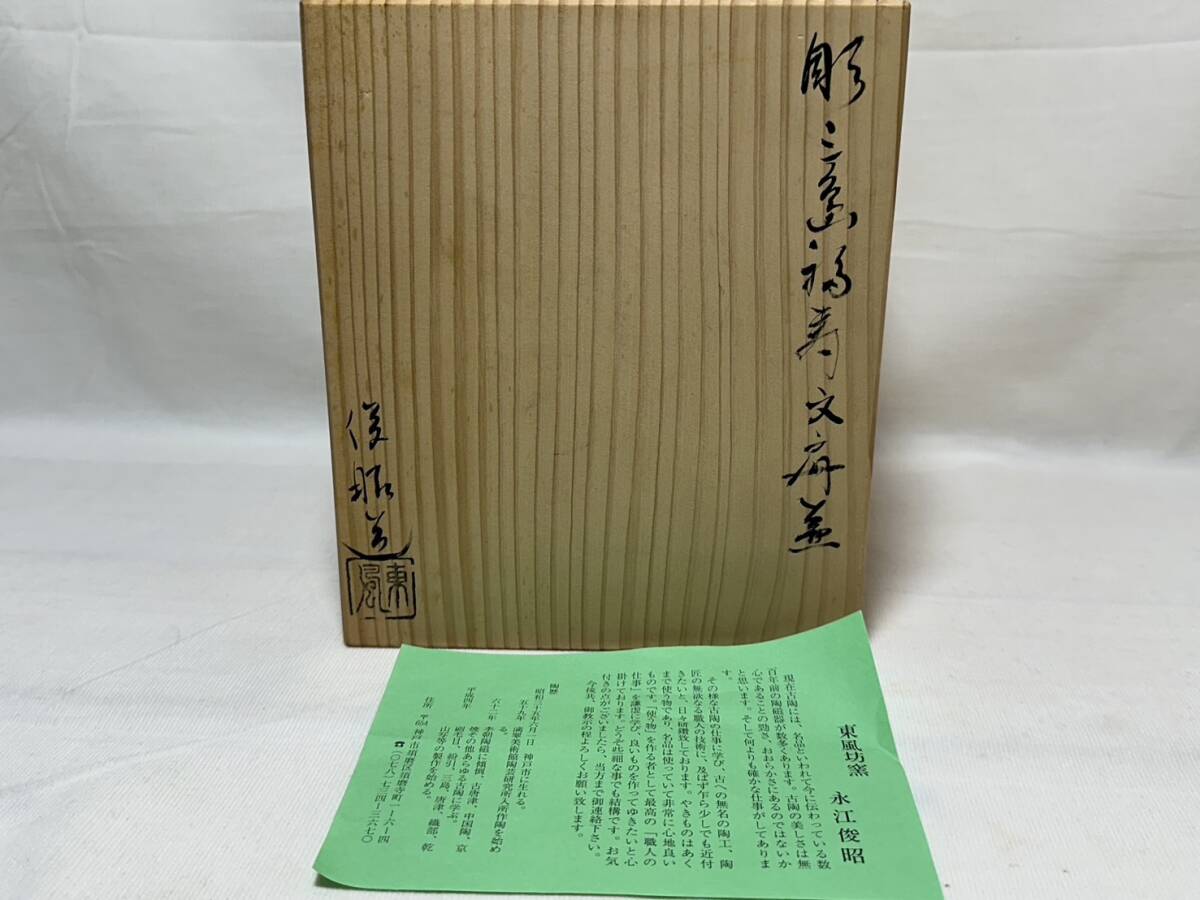 彫三島福寿文斉盖
俊昭造
東風
東風坊窯 永江俊昭
現在古陶には、名品といわれて今に伝わっている数
百年前の陶磁器が数多くあります。古陶の美しさは無
心であることの勁さ、おおらかさにあるのではないか
と思います。そして何よりも確かな仕事がしてありま
す。
その様な古陶の仕事に学び、古への無名の陶工、陶
匠の無欲なる職人の技術に、及ばず乍ら少しでも近付
きたいと、日々研鑽致しております。やきものはあく
まで使う物であり、名品は使っていて非常に心地良い
ものです。「使う物」を作る者として最高の「職人の
仕事」を謙虚に学び、良いものを作ってゆきたいと心
掛けております。どうぞ些細な事でも結構です。お気
付きの点がございましたら、当方まで御連絡下さい。
今後共、御教示の程よろしくお願い致します。
陶歴
昭和三十五年六月二日 神戸市に生れる。
五十九年 満粟美術館陶芸研究所入所作陶を始め
る。
六十二年 李朝陶磁に傾倒、古唐津、中国陶、京
焼その他あらゆる古陶に学ぶ。
平成四年 昭老日、粉引、三島、唐津、織部、乾
山写等の製作を始める。
住所 〒654 神戸市須磨区須磨寺町一-六-四
☎(〇七八)七三四-三六七〇